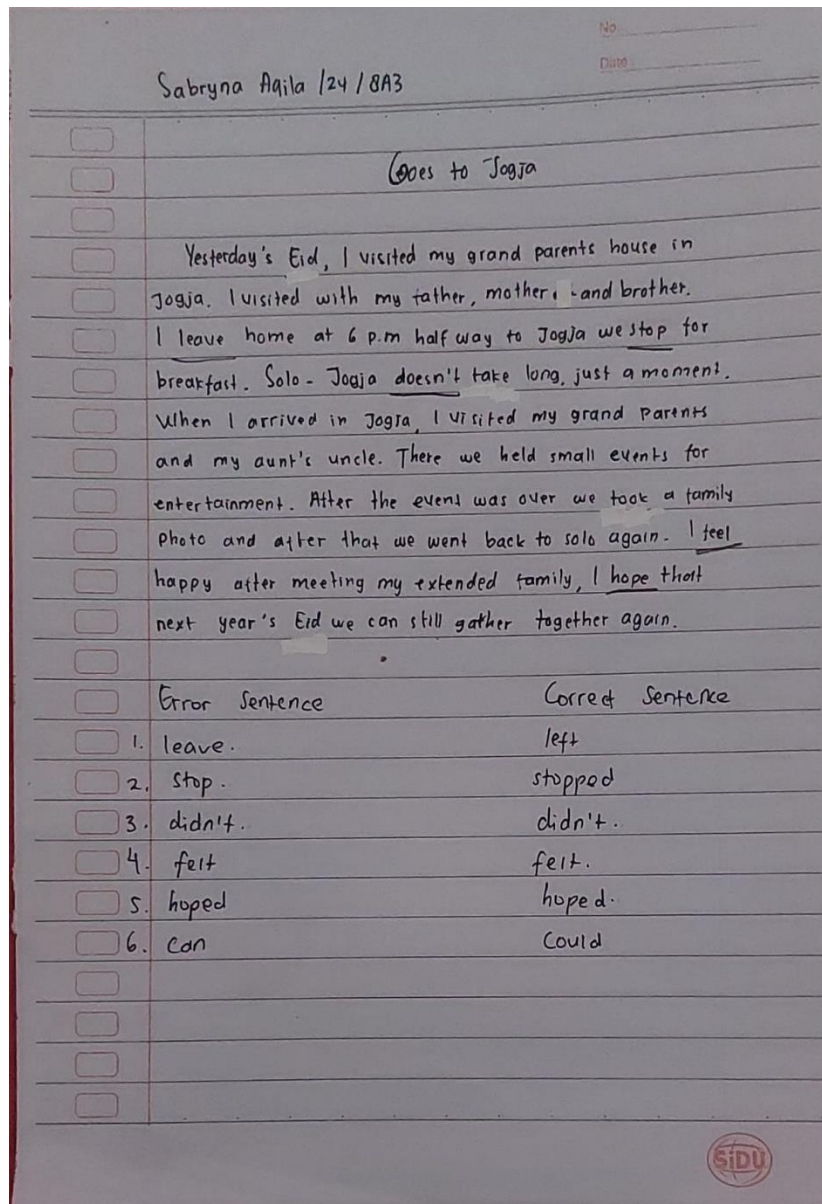 No
Date
Sabryna Aqila /24 / 8A3
Goes to Jogja
Yesterday's Eid, I visited my grand parents house in
Jogja. I visited with my father, mother, and brother.
I leave home at 6 p.m half way to Jogja we stop for
breakfast. Solo - Jogja doesn't take long, just a moment.
When I arrived in Jogja, I visited my grand parents
and my aunt's uncle. There we held small events for
entertainment. After the event was over we took a family
photo and after that we went back to solo again. I feel
happy after meeting my extended family, I hope that
next year's Eid we can still gather together again.
Error Sentence Correct Sentence
1. leave. left
2. Stop. stopped
3. didn't. didn't.
4. felt felt.
5. hoped hoped.
6. Can Could
SiDU